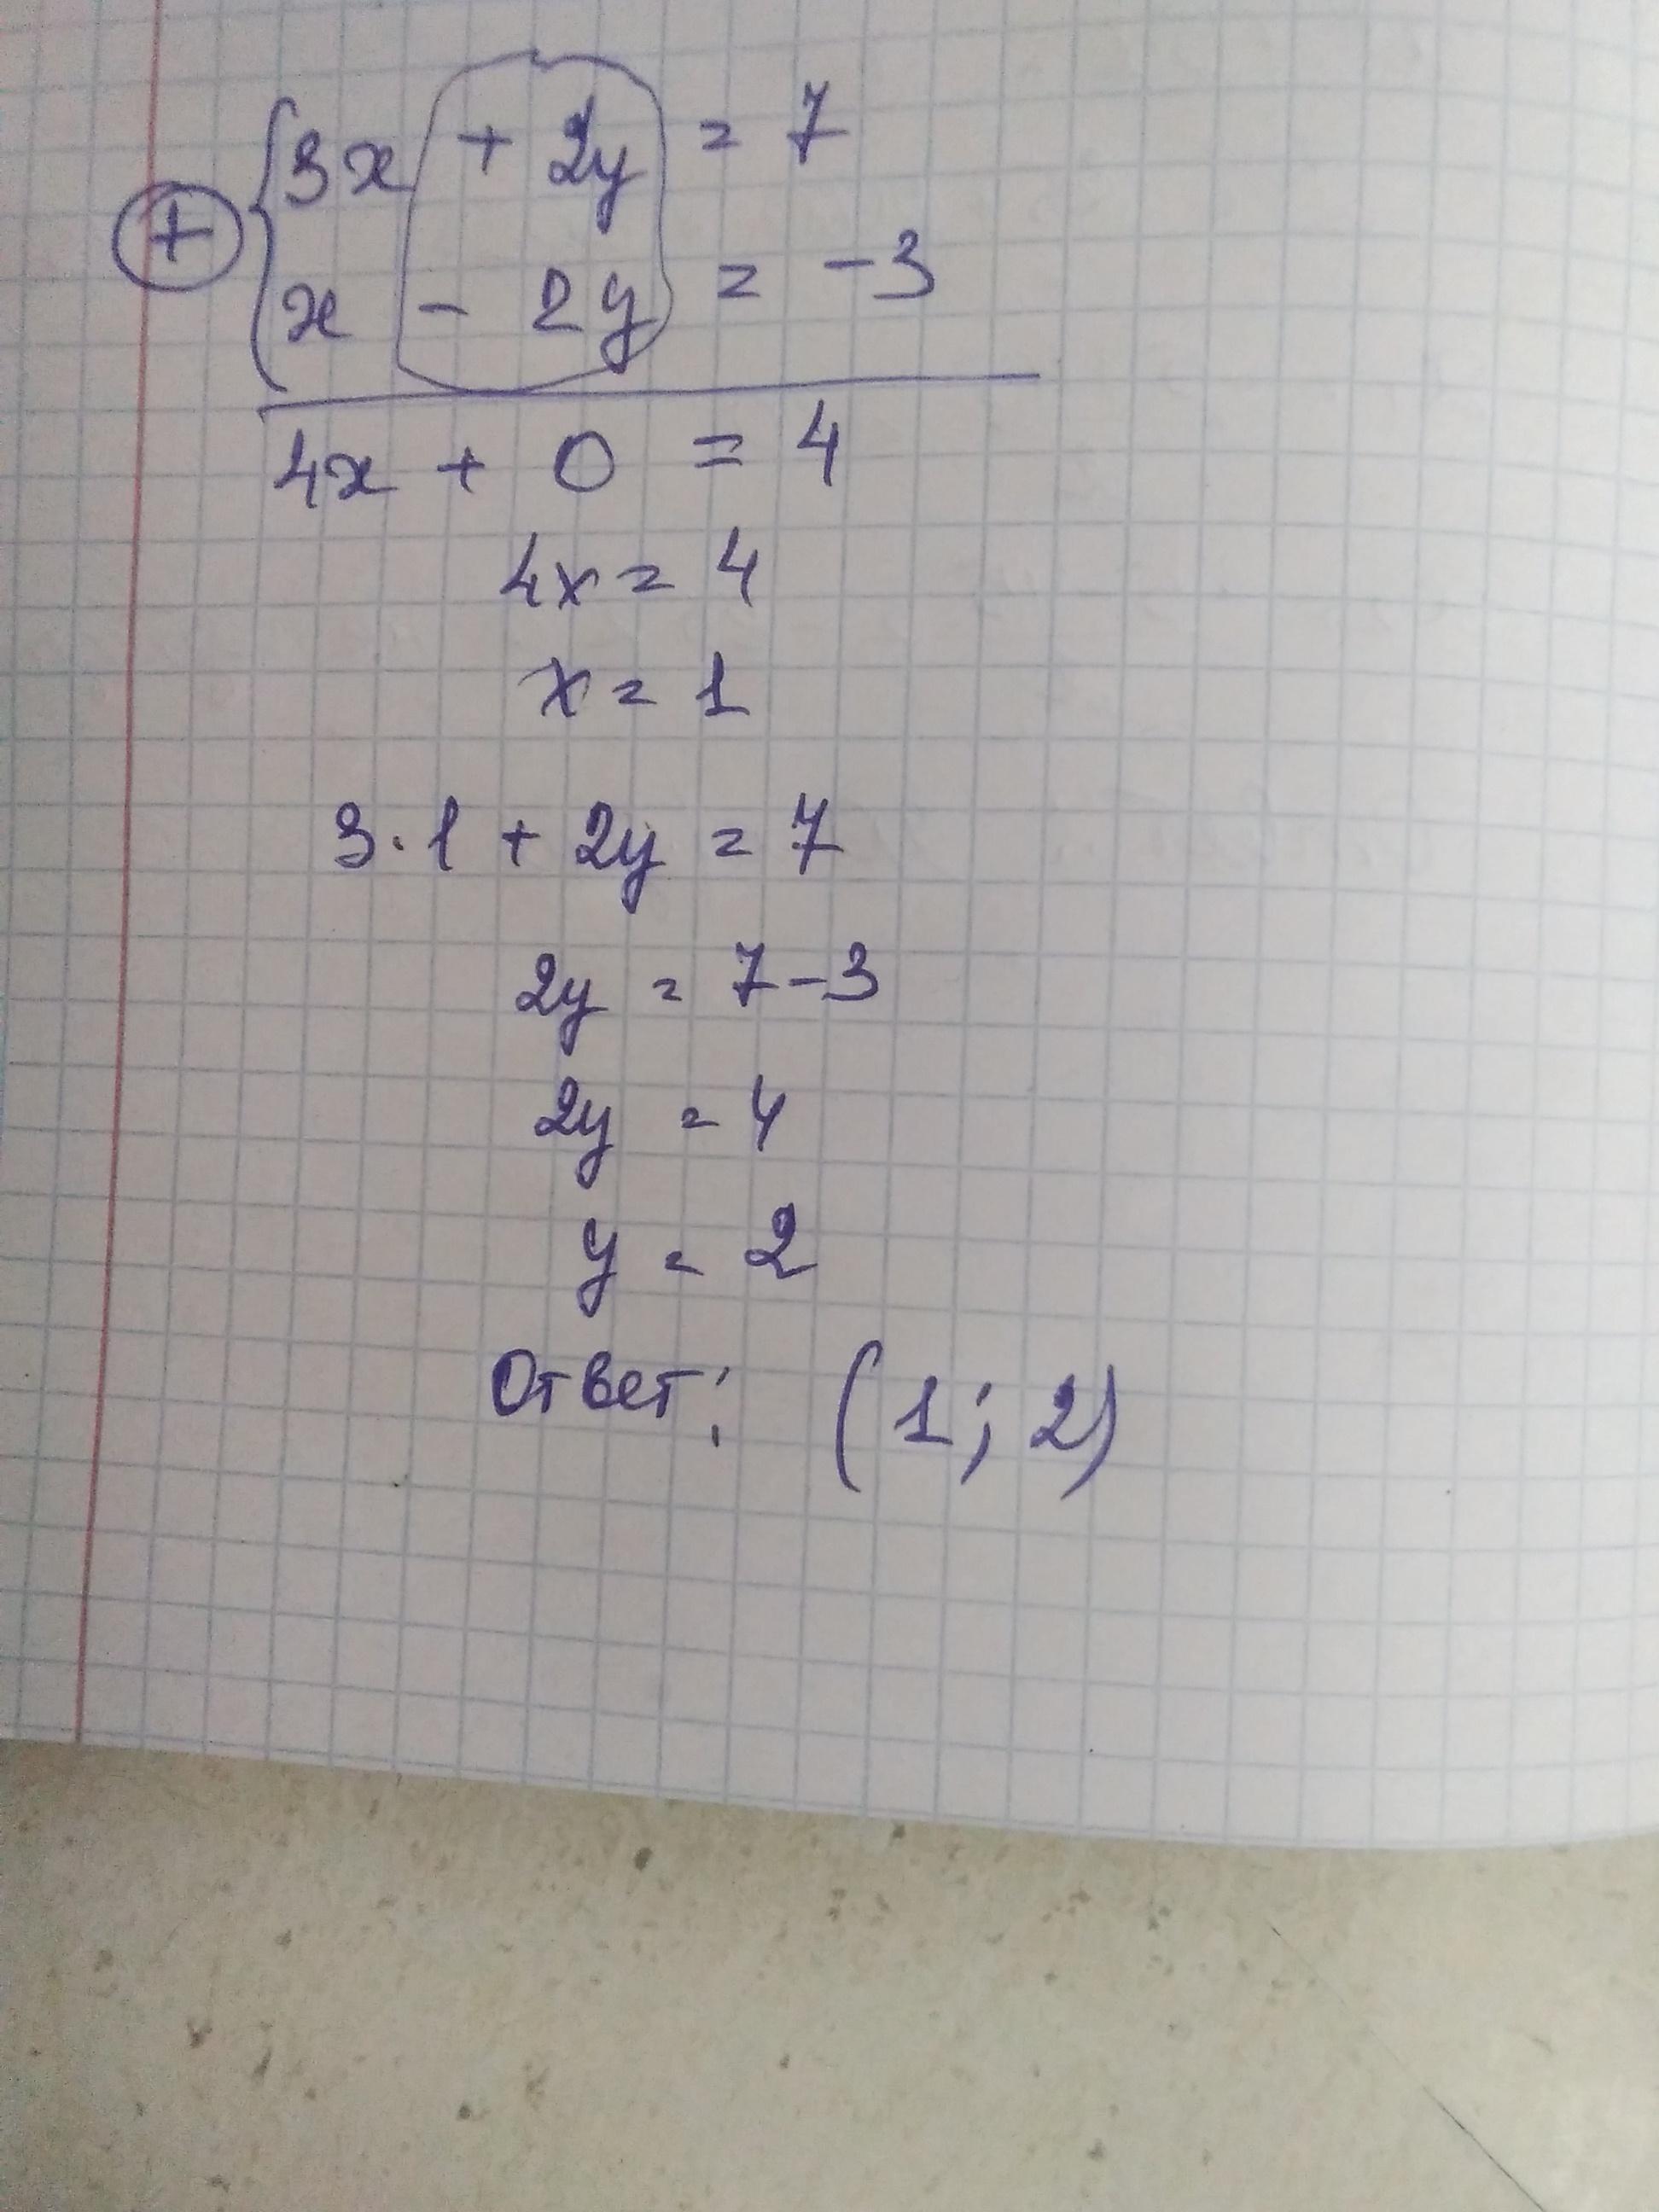 + { 3x + 2y = 7
x - 2y = -3
4x + 0 = 4
4x = 4
x = 1
3·1 + 2y = 7
2y = 7-3
2y = 4
y = 2
Ответ: (1; 2)